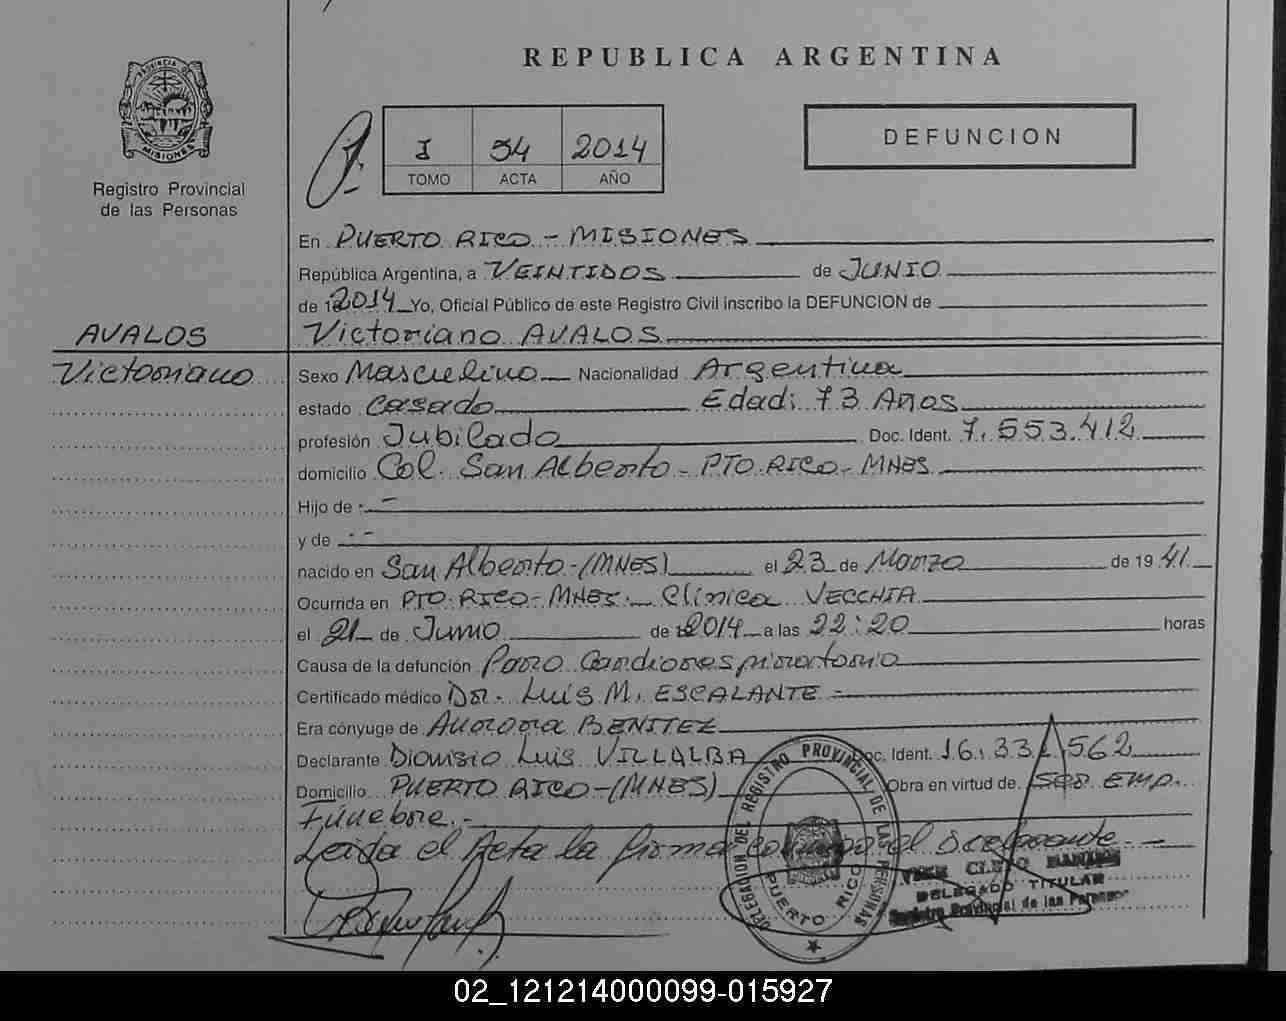 REPUBLICA ARGENTINA
PROVINCIA DE
MISIONES
Registro Provincial
de las Personas
I 54 2014
TOMO ACTA AÑO
DEFUNCION
En PUERTO RICO - MISIONES
República Argentina, a VEINTIDOS de JUNIO
de 2014 Yo, Oficial Público de este Registro Civil inscribo la DEFUNCION de
AVALOS
Victoriano AVALOS
Victoriano
Sexo Masculino Nacionalidad Argentina
estado Casado Edad: 73 Años
profesión Jubilado Doc. Ident. 7.553.412
domicilio Col. San Alberto - PTO RICO - MNES
Hijo de - -
y de - -
nacido en San Alberto - (MNES) el 23 de Marzo de 1941
Ocurrida en PTO. RICO - MNES. Clínica VECCHIA
el 21 de Junio de 2014 a las 22:20 horas
Causa de la defunción Paro Cardiorespiratorio
Certificado médico Dr. Luis M. ESCALANTE -
Era cónyuge de Aurora BENITEZ
Declarante Dionisio Luis VILLALBA Doc. Ident. 16.331.562
Domicilio PUERTO RICO - (MNES) Obra en virtud de. Ser EMP.
Fúnebre. -
Leida el Acta la firma conmigo el declarante - -
DELEGACION DEL REGISTRO PROVINCIAL DE LAS PERSONAS
PUERTO RICO
DELEGADO TITULAR
Registro Provincial de las Personas
02_121214000099-015927